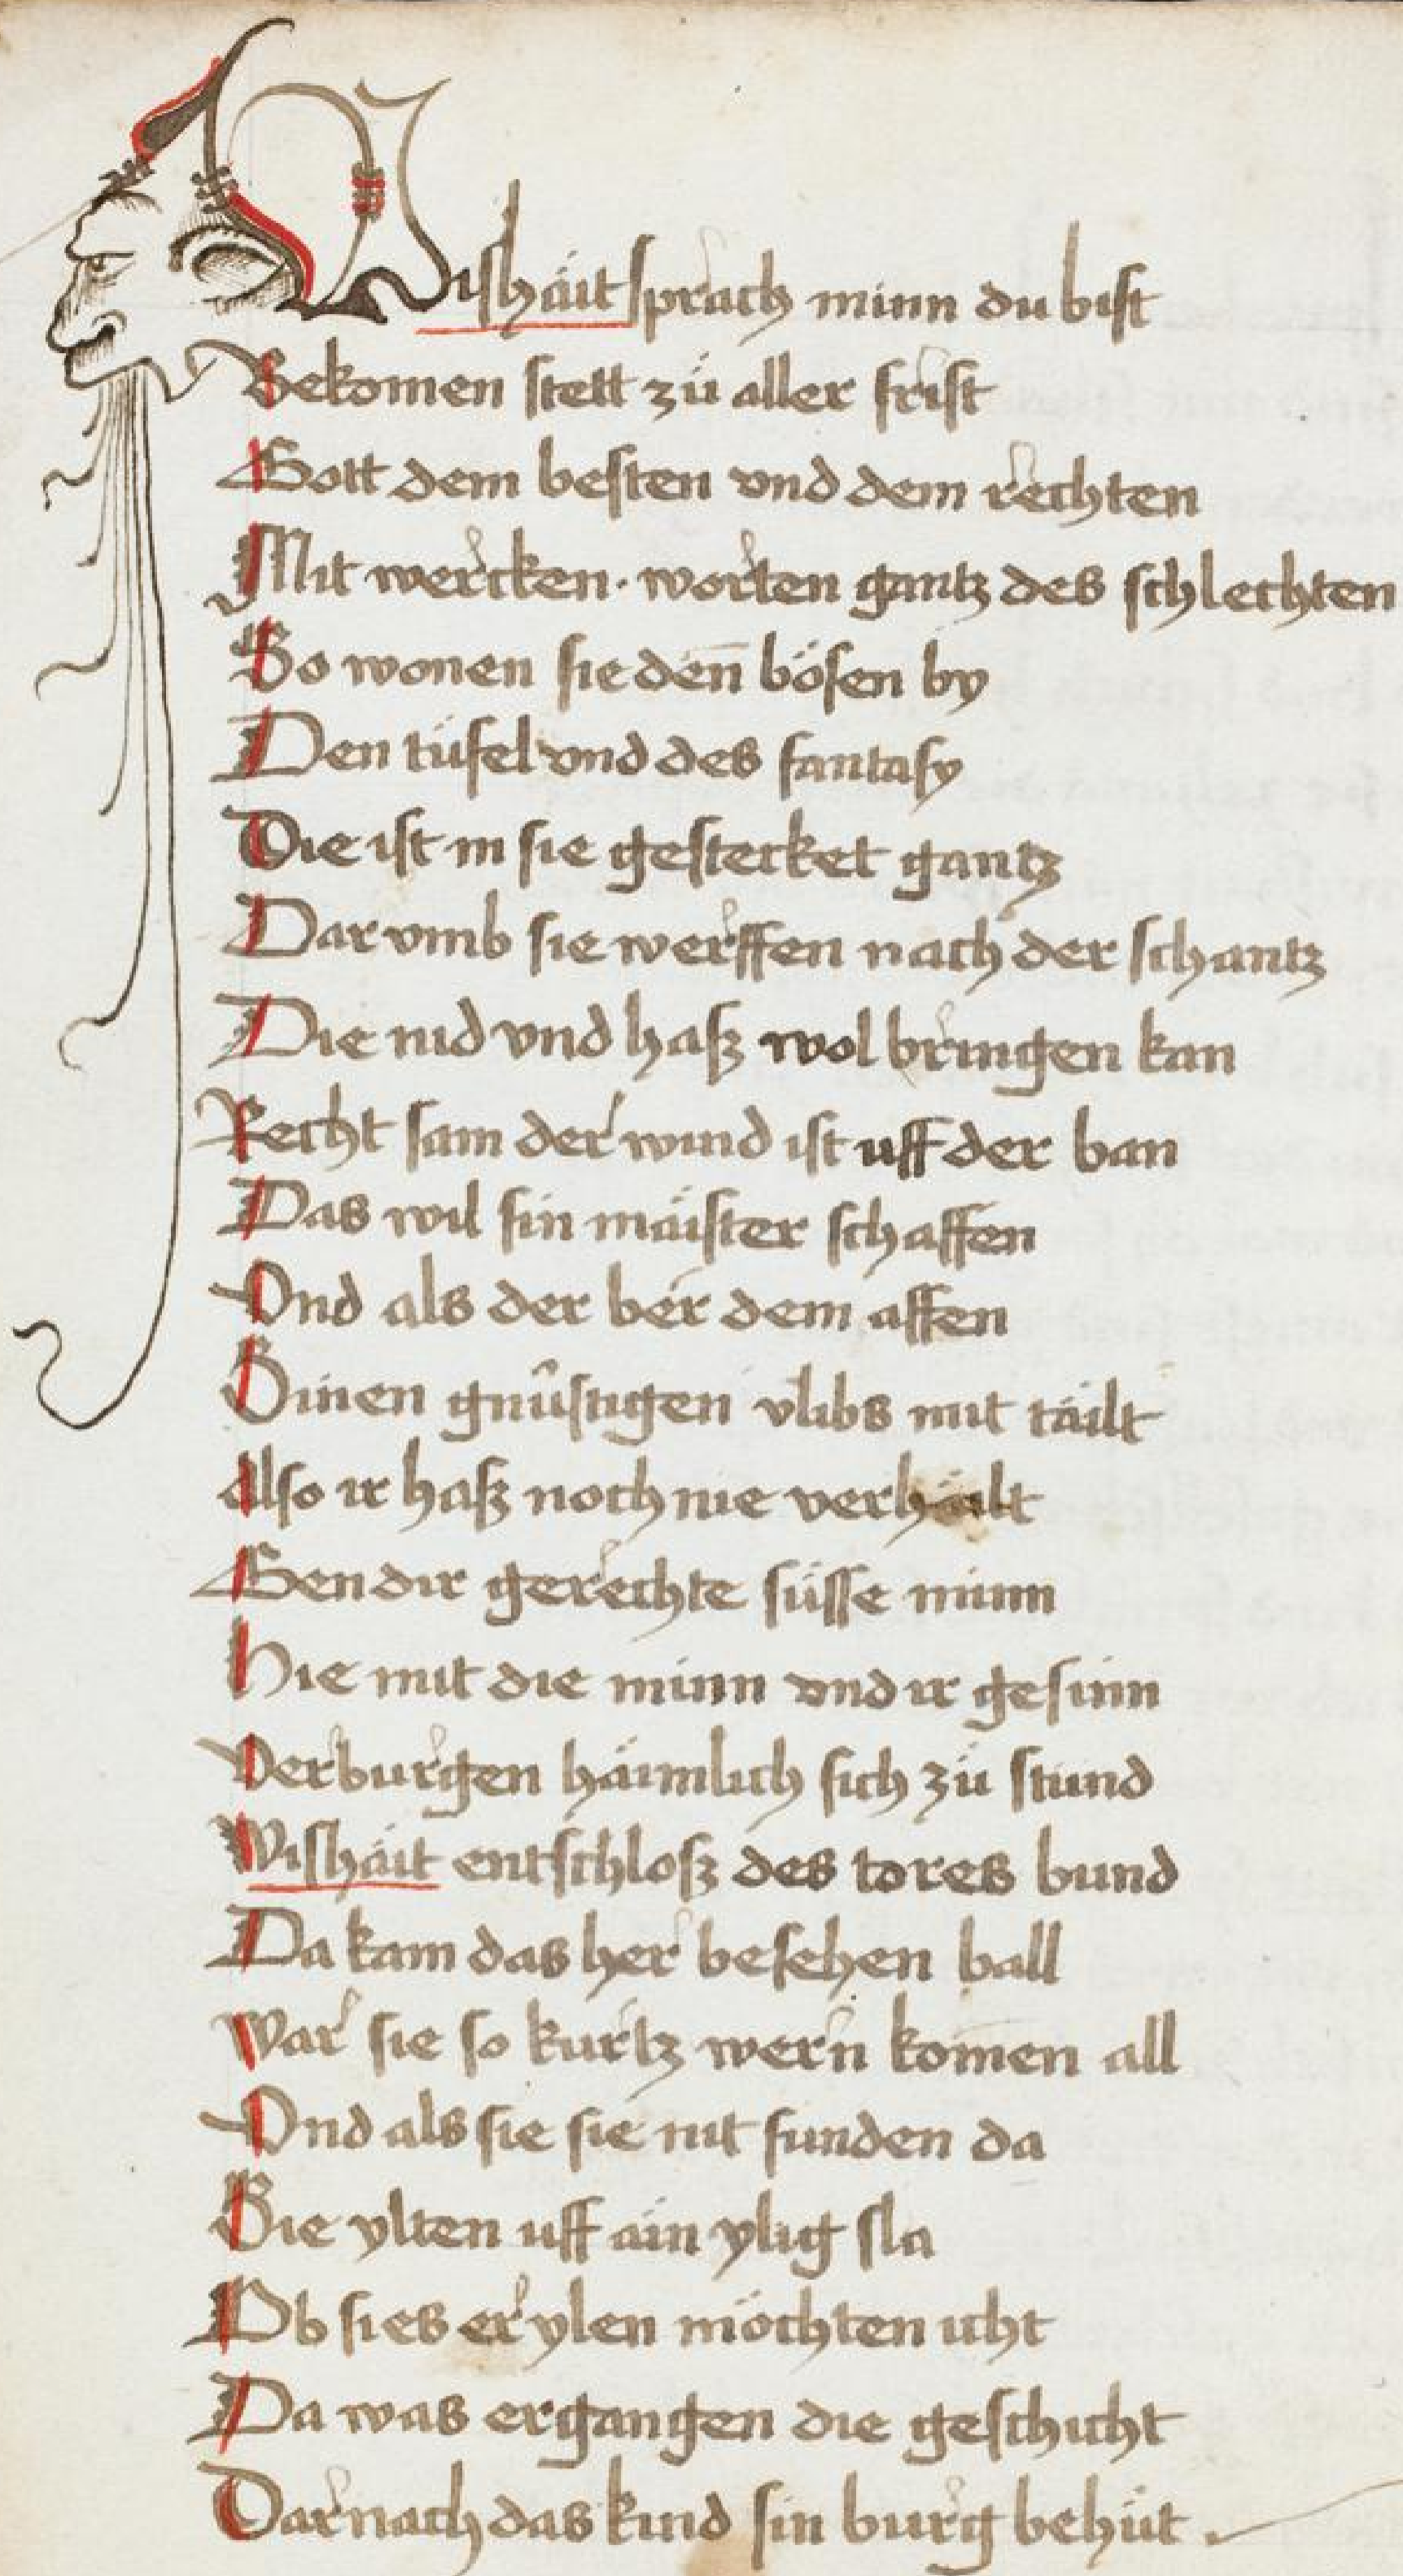 Wishäit sprach minn du bist
Bekomen stett zü aller frist
Gott dem besten vnd dem rechten
Mit wercken · worten gantz des schlechten
So wonen sie den̄ bösen by
Den tüfel vnd des fantasy
Die ist in sie gestecket gantz
Dar vmb sie werffen nach der schantz
Die nid vnd hasz wol bringen kan
Recht sam der wind ist uff der ban
Das wil sin mäister schaffen
Vnd als der ber dem affen
Sinen gnűstigen vlibs mit täilt
Also ir hasz noch nie verhält
Gen dir gerechte süsse minn
Hie mit die minn vnd ir gesinn
Verburgen häimlich sich zü stund
Wishäit entschlosz des tores bund
Da kam das her besehen ball
War sie so kurtz wern komen all
Vnd als sie sie nit funden da
Sie ylten uff ain ylig sla
Ob sies er ylen möchten icht
Da was ergangen die geschicht
Darnach das kind sin burg behüt .